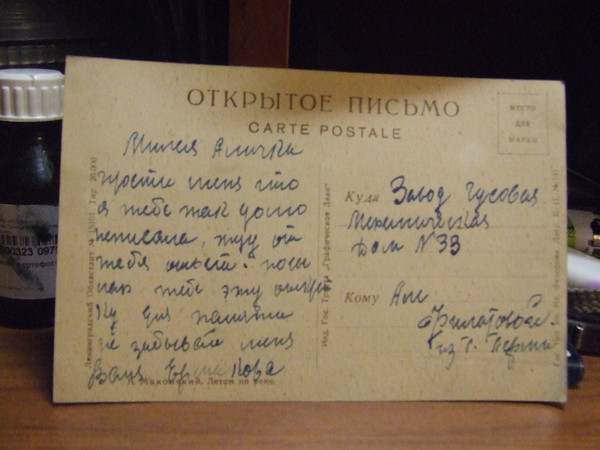 ОТКРЫТОЕ ПИСЬМО
CARTE POSTALE
МЕСТО
ДЛЯ
МАРКИ
Милая Аличка
прости меня что
я тебе так долго
неписала, жду от
тебя ответ. посы
лаю тебе эту открыт
ку для памяти
не забывай меня
Валя
Куда Завод Чусовая
Механическая
дом N 33
Кому Але
Филатовой
из г. Перми
Ленинградский Областлит №
Тир. 20.000
Изд. Гос. Треста „Графическое Дело"
Маковский. Летом на
00323 097